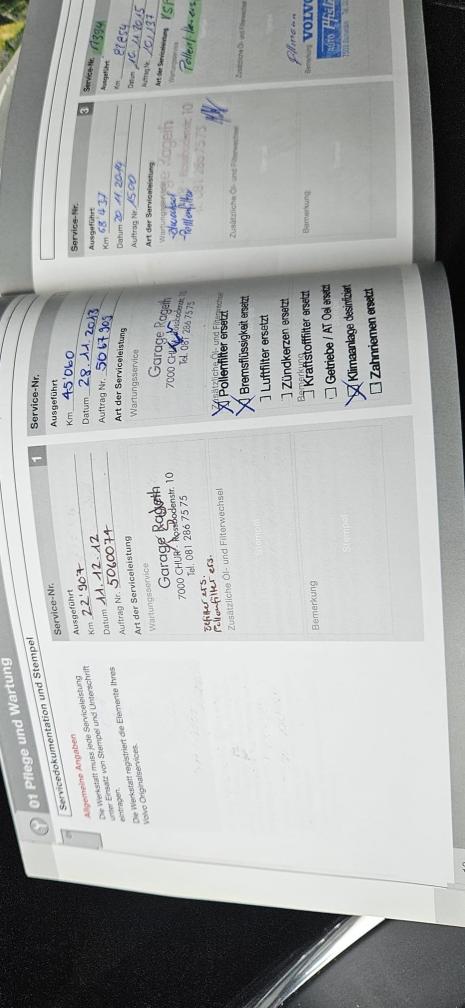 01 Pflege und Wartung
Servicedokumentation und Stempel
Allgemeine Angaben
Die Werkstatt muss jede Serviceleistung
unter Einsatz von Stempel und Unterschrift
eintragen.
Die Werkstatt registriert die Elemente Ihres
Volvo Originalservices.
Service-Nr. 1
Ausgeführt
Km 22'907
Datum 11.12.12
Auftrag Nr. 5060071
Art der Serviceleistung
Wartungsservice
Garage Rageth
7000 CHUR, Rossbodenstr. 10
Tel. 081 286 75 75
Pollenfilter ers.
Zusätzliche Öl- und Filterwechsel
Bemerkung
Service-Nr.
Ausgeführt
Km 45'060
Datum 28.11.2013
Auftrag Nr. 5067909
Art der Serviceleistung
Wartungsservice
Garage Rageth
7000 CHUR, Rossbodenstr. 10
Tel. 081 286 75 75
Zusätzliche Öl- und Filterwechsel
Pollenfilter ersetzt
Bremsflüssigkeit ersetzt
Luftfilter ersetzt
Zündkerzen ersetzt
Bemerkung
Kraftstofffilter ersetzt
Getriebe / AT Oel ersetzt
Klimaanlage desinfiziert
Zahnriemen ersetzt
Service-Nr. 3
Ausgeführt
Km 68'437
Datum 20.11.2014
Auftrag Nr. 1500
Art der Serviceleistung
Wartungsservice
Garage Rageth
Rossbodenstr. 10
081 286 75 75
-Pollenfilter
Zusätzliche Öl- und Filterwechsel
Bemerkung
Service-Nr.
Ausgeführt
Km 91854
Datum 10.11.2015
Auftrag Nr. 101137
Art der Serviceleistung
Wartungsservice
Zusätzliche Öl- und Filterwechsel
Bemerkung
VOLVO